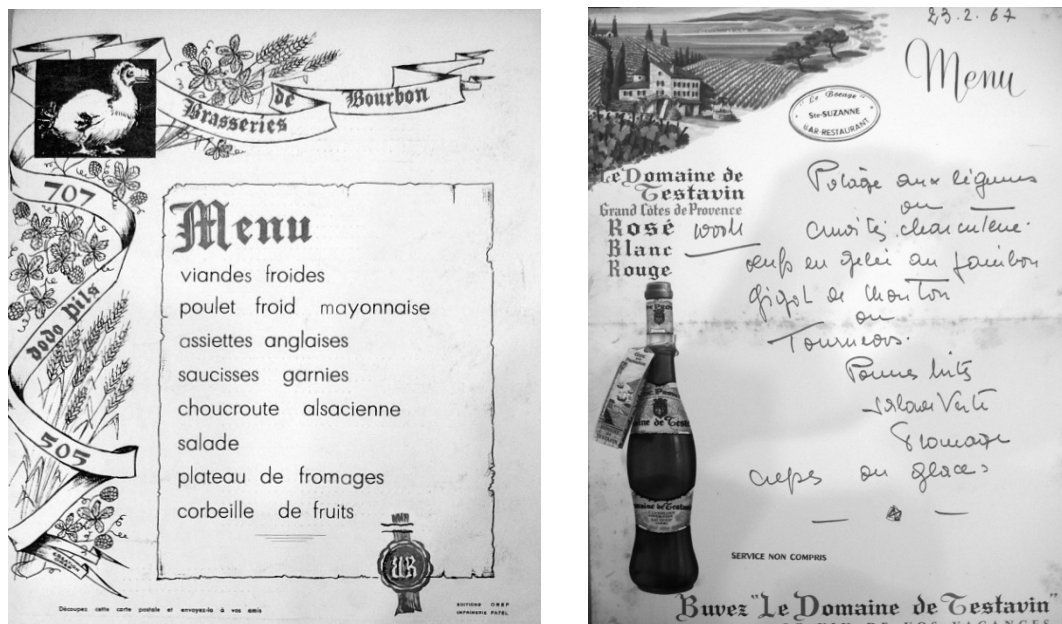 Brasseries de Bourbon
707
dodo pils
505
Menu
viandes froides
poulet froid mayonnaise
assiettes anglaises
saucisses garnies
choucroute alsacienne
salade
plateau de fromages
corbeille de fruits
Découpez cette carte postale et envoyez-la à vos amis
EDITIONS OREP
IMPRIMERIE PATEL
23.2.67
Menu
"Le Bocage"
Ste-SUZANNE
BAR-RESTAURANT
Le Domaine de
Testavin
Grand Côtes de Provence
Rosé
Blanc
Rouge
Potage aux légumes
ou
crudités charcuterie
oeufs en gelée au jambon
gigot de Mouton
ou
Tournedos
Pommes frites
Salade Verte
Fromage
crêpes ou glaces
SERVICE NON COMPRIS
Buvez "Le Domaine de Testavin"
LE VIN DE VOS VACANCES